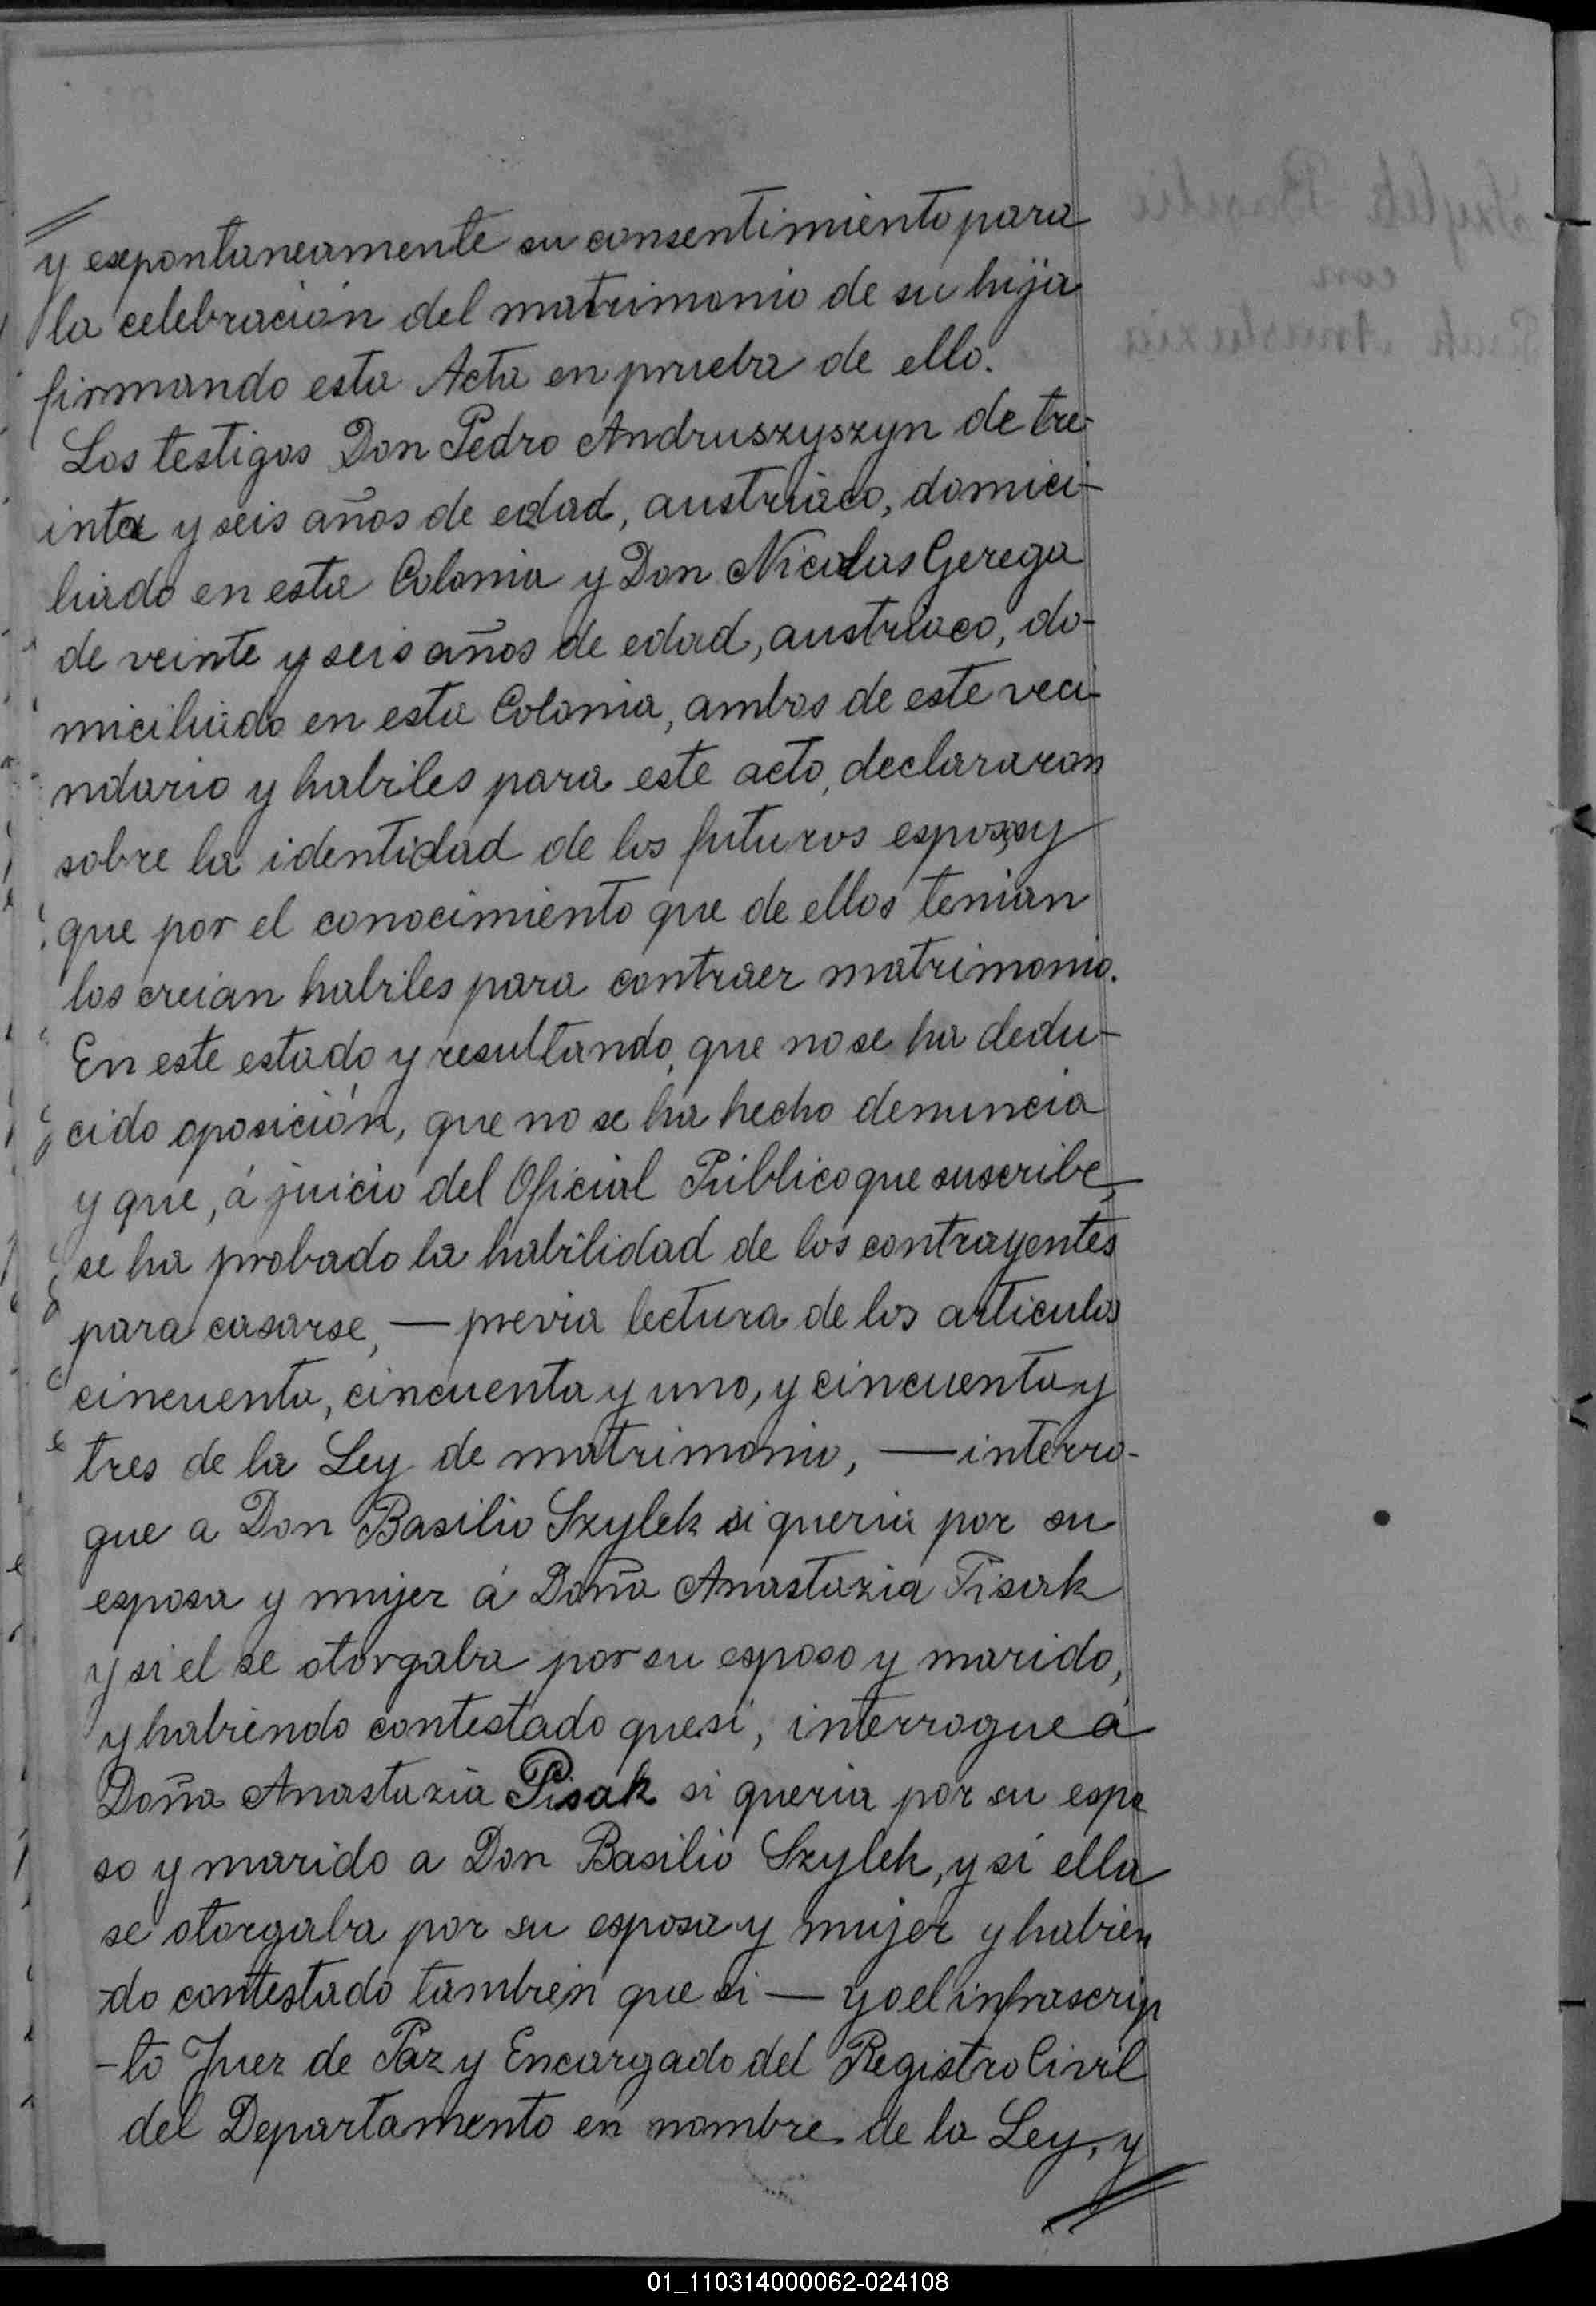 y expontaneamente su consentimiento para
la celebración del matrimonio de su hija
firmando esta Acta en prueba de ello.
Los testigos Don Pedro Andruszyszyn de tre-
inta y seis años de edad, austriaco, domici-
liado en esta Colonia y Don Nicolas Gerega
de veinte y seis años de edad, austriaco, do-
miciliado en esta Colonia, ambos de este veci-
ndario y habiles para este acto, declararon
sobre la identidad de los futuros esposos, y
que por el conocimiento que de ellos tenian
los creian habiles para contraer matrimonio.
En este estado y resultando, que no se ha dedu-
cido oposición, que no se ha hecho denuncia
y que, á juicio del Oficial Público que suscribe,
se ha probado la habilidad de los contrayentes
para casarse, — previa lectura de los articulos
cincuenta, cincuenta y uno, y cincuenta y
tres de la Ley de matrimonio, — interro-
gue a Don Basilio Szylek si queria por su
esposa y mujer á Doña Anastazia Pisak
y si el se otorgaba por su esposo y marido,
y habiendo contestado que si, interrogue á
Doña Anastazia Pisak si queria por su espo
so y marido a Don Basilio Szylek, y si ella
se otorgaba por su esposa y mujer y habien
-do contestado tambien que si — yo el infrascrip
-to Juez de Paz y Encargado del Registro Civil
del Departamento en nombre de la Ley, y
01_110314000062-024108